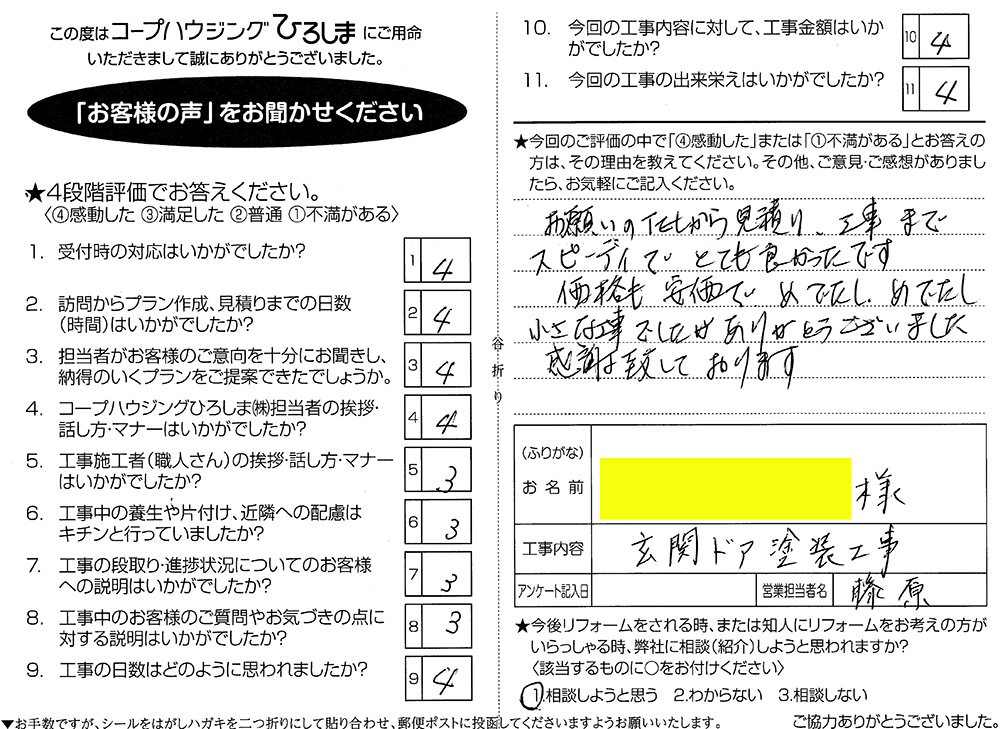 この度はコープハウジングひろしまにご用命
いただきまして誠にありがとうございました。
「お客様の声」をお聞かせください
★4段階評価でお答えください。
〈④感動した ③満足した ②普通 ①不満がある〉
1. 受付時の対応はいかがでしたか?
1 4
2. 訪問からプラン作成、見積りまでの日数
(時間)はいかがでしたか?
2 4
3. 担当者がお客様のご意向を十分にお聞きし、
納得のいくプランをご提案できたでしょうか。
3 4
4. コープハウジングひろしま㈱担当者の挨拶・
話し方・マナーはいかがでしたか?
4 4
5. 工事施工者(職人さん)の挨拶・話し方・マナー
はいかがでしたか?
5 3
6. 工事中の養生や片付け、近隣への配慮は
キチンと行っていましたか?
6 3
7. 工事の段取り・進捗状況についてのお客様
への説明はいかがでしたか?
7 3
8. 工事中のお客様のご質問やお気づきの点に
対する説明はいかがでしたか?
8 3
9. 工事の日数はどのように思われましたか?
9 4
谷折り
10. 今回の工事内容に対して、工事金額はいか
がでしたか?
10 4
11. 今回の工事の出来栄えはいかがでしたか?
11 4
★今回のご評価の中で「④感動した」または「①不満がある」とお答えの
方は、その理由を教えてください。その他、ご意見・ご感想がありまし
たら、お気軽にご記入ください。
お願いのTELから見積り、工事まで
スピーディでとても良かったです
価格も安価でめでたし、めでたし
小さな工事でしたがありがとうございました
感謝は致しております
(ふりがな)
お名前
様
工事内容
玄関ドア塗装工事
アンケート記入日
営業担当者名
藤原
★今後リフォームをされる時、または知人にリフォームをお考えの方が
いらっしゃる時、弊社に相談(紹介)しようと思われますか?
〈該当するものに○をお付けください〉
1.相談しようと思う 2.わからない 3.相談しない
▼お手数ですが、シールをはがしハガキを二つ折りにして貼り合わせ、郵便ポストに投函してくださいますようお願いいたします。
ご協力ありがとうございました。